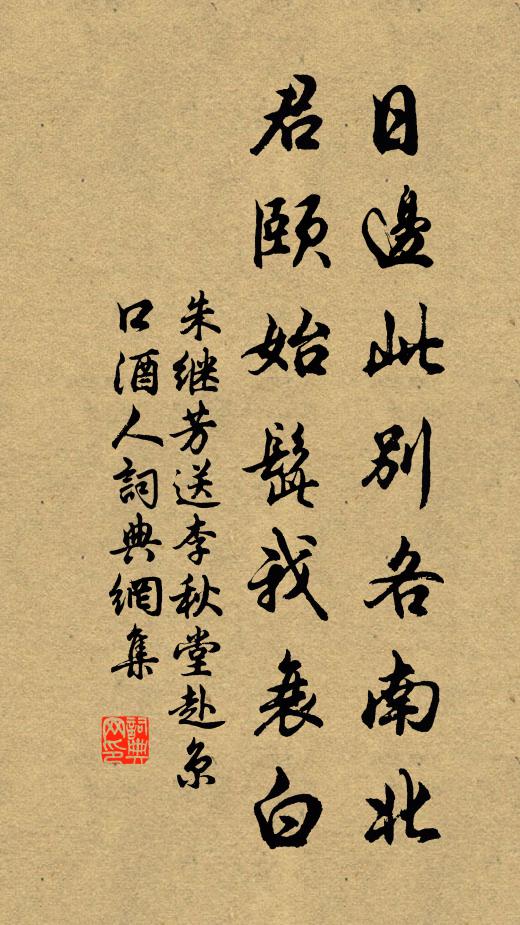 日邊此別各南北
君頤始髭我衰白
朱继芳送李秋堂赴京
口酒人詞典網集
詞典网印